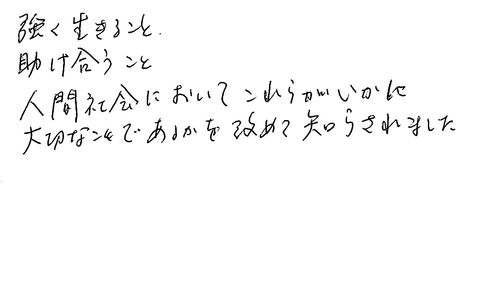 強く生きること.
助け合うこと
人間社会において これらがいかに
大切なことであるかを改めて知らされました